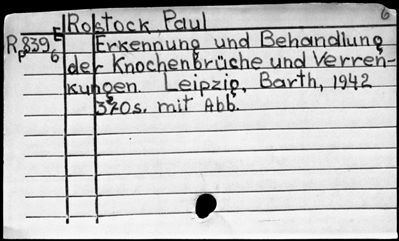 Rostock, Paul 6
R 839 E
p 6
Erkennung und Behandlung
der Knochenbrüche und Verren-
kungen. Leipzig, Barth, 1942
370s. mit Abb.